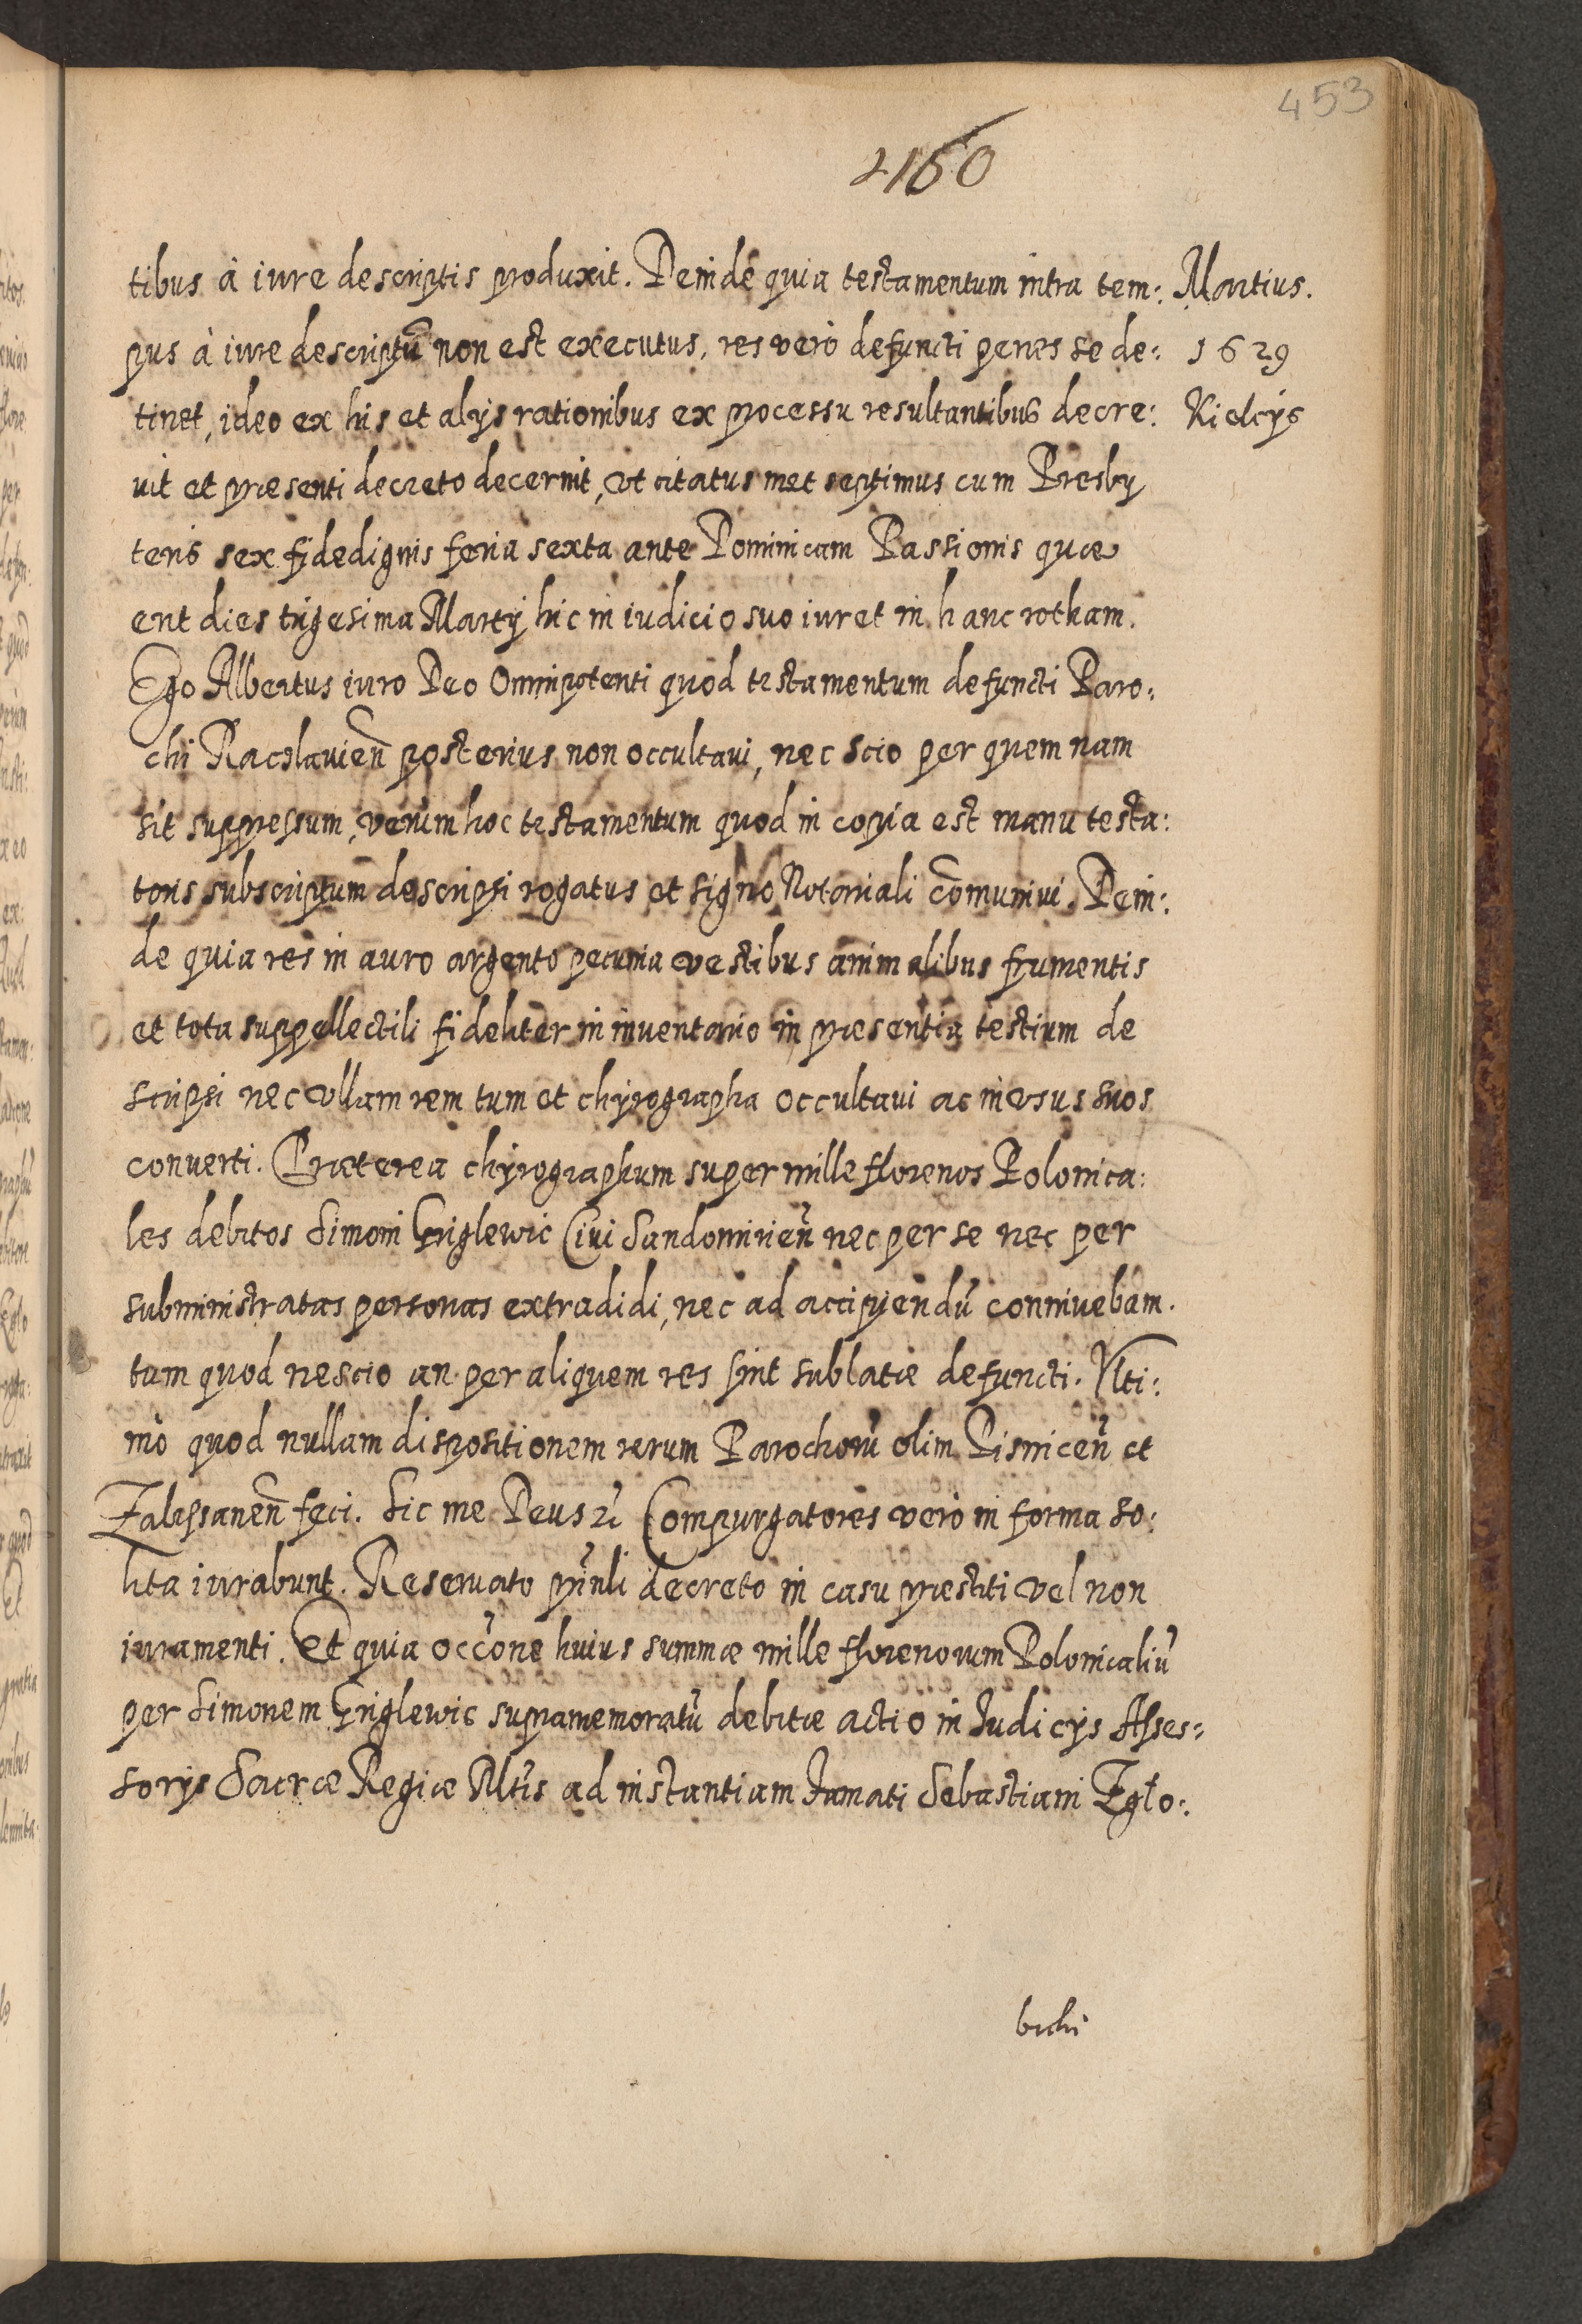 453
2160
tibus à iure descriptis produxit. Deinde quia testamentum intra tem: Martius.
pus à iure descriptũ non est executus, res verò defuncti penes se de: 1629
tinet, ideo ex his et alijs rationibus ex processu resultantibus decre: Kielcijs
uit et præsenti decreto decernit, vt citatus met septimus cum Presby
teris sex fidedignis feria sexta ante Dominicam Passionis quæ
erit dies trigesima Martij hic in iudicio suo iuret in hanc rotham.
Ego Albertus iuro Deo Omnipotenti quod testamentum defuncti Paro:
chi Racslauień posterius non occultaui, nec scio per quem nam
sit suppressum, verùm hoc testamentum quod in copia est manu testa:
toris subscriptum descripsi rogatus et signo Notoriali com̃uniui. Dein:
de quia res in auro argento pecunia vestibus animalibus frumentis
et tota suppellectili fideliter in inuentario in præsentia testium de
scripsi nec vllam rem tum et chyrographa occultaui ac in vsus suos
conuerti. Præterea chyrographum super mille florenos Polonica:
les debitos Simoni Griglewic Ciui Sandomirień nec per se nec per
subministratas personas extradidi, nec ad accipiendũ conniuebam.
tum quod nescio an per aliquem res sint sublatæ defuncti. Vlti:
mò quod nullam dispositionem rerum Parochorũ olim Pisniceń et
Zalessaneń feci. Sic me Deus etc̃ Compurgatores verò in forma so:
lita iurabunt. Reseruato pñnli decreto in casu præstiti vel non
iuramenti. Et quia occõne huius summæ mille florenorum Polonicaliũ
per Simonem Griglewic supramemoratũ debitæ actio in Iudicijs Asses:
sorijs Sacræ Regiæ Mtĩs ad instantiam Famati Sebastiani Zgło:
bichi